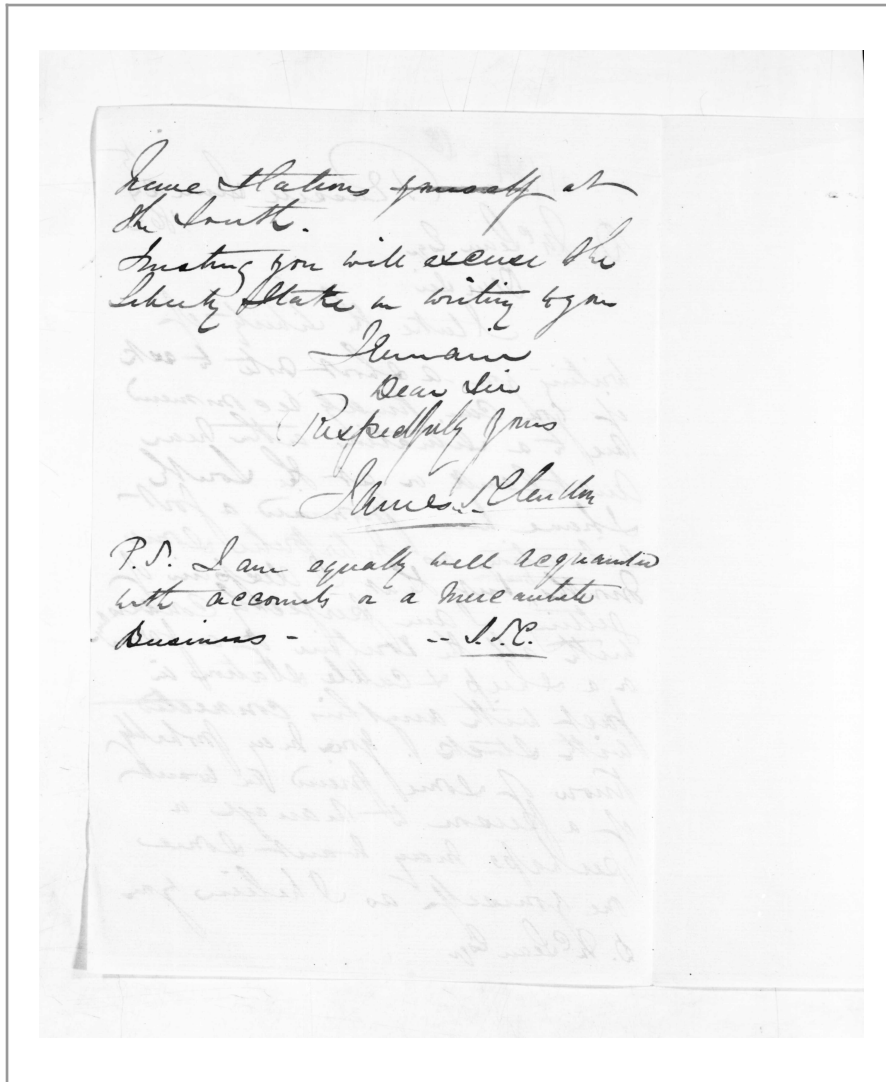 have Stations yourself at
the South.
Trusting you will excuse the
liberty I take in writing to you
I remain
Dear Sir
Respectfully yours
James S. Clendon
P.S. I am equally well acquainted
with accounts or a Mercantile
Business - -- J.S.C.